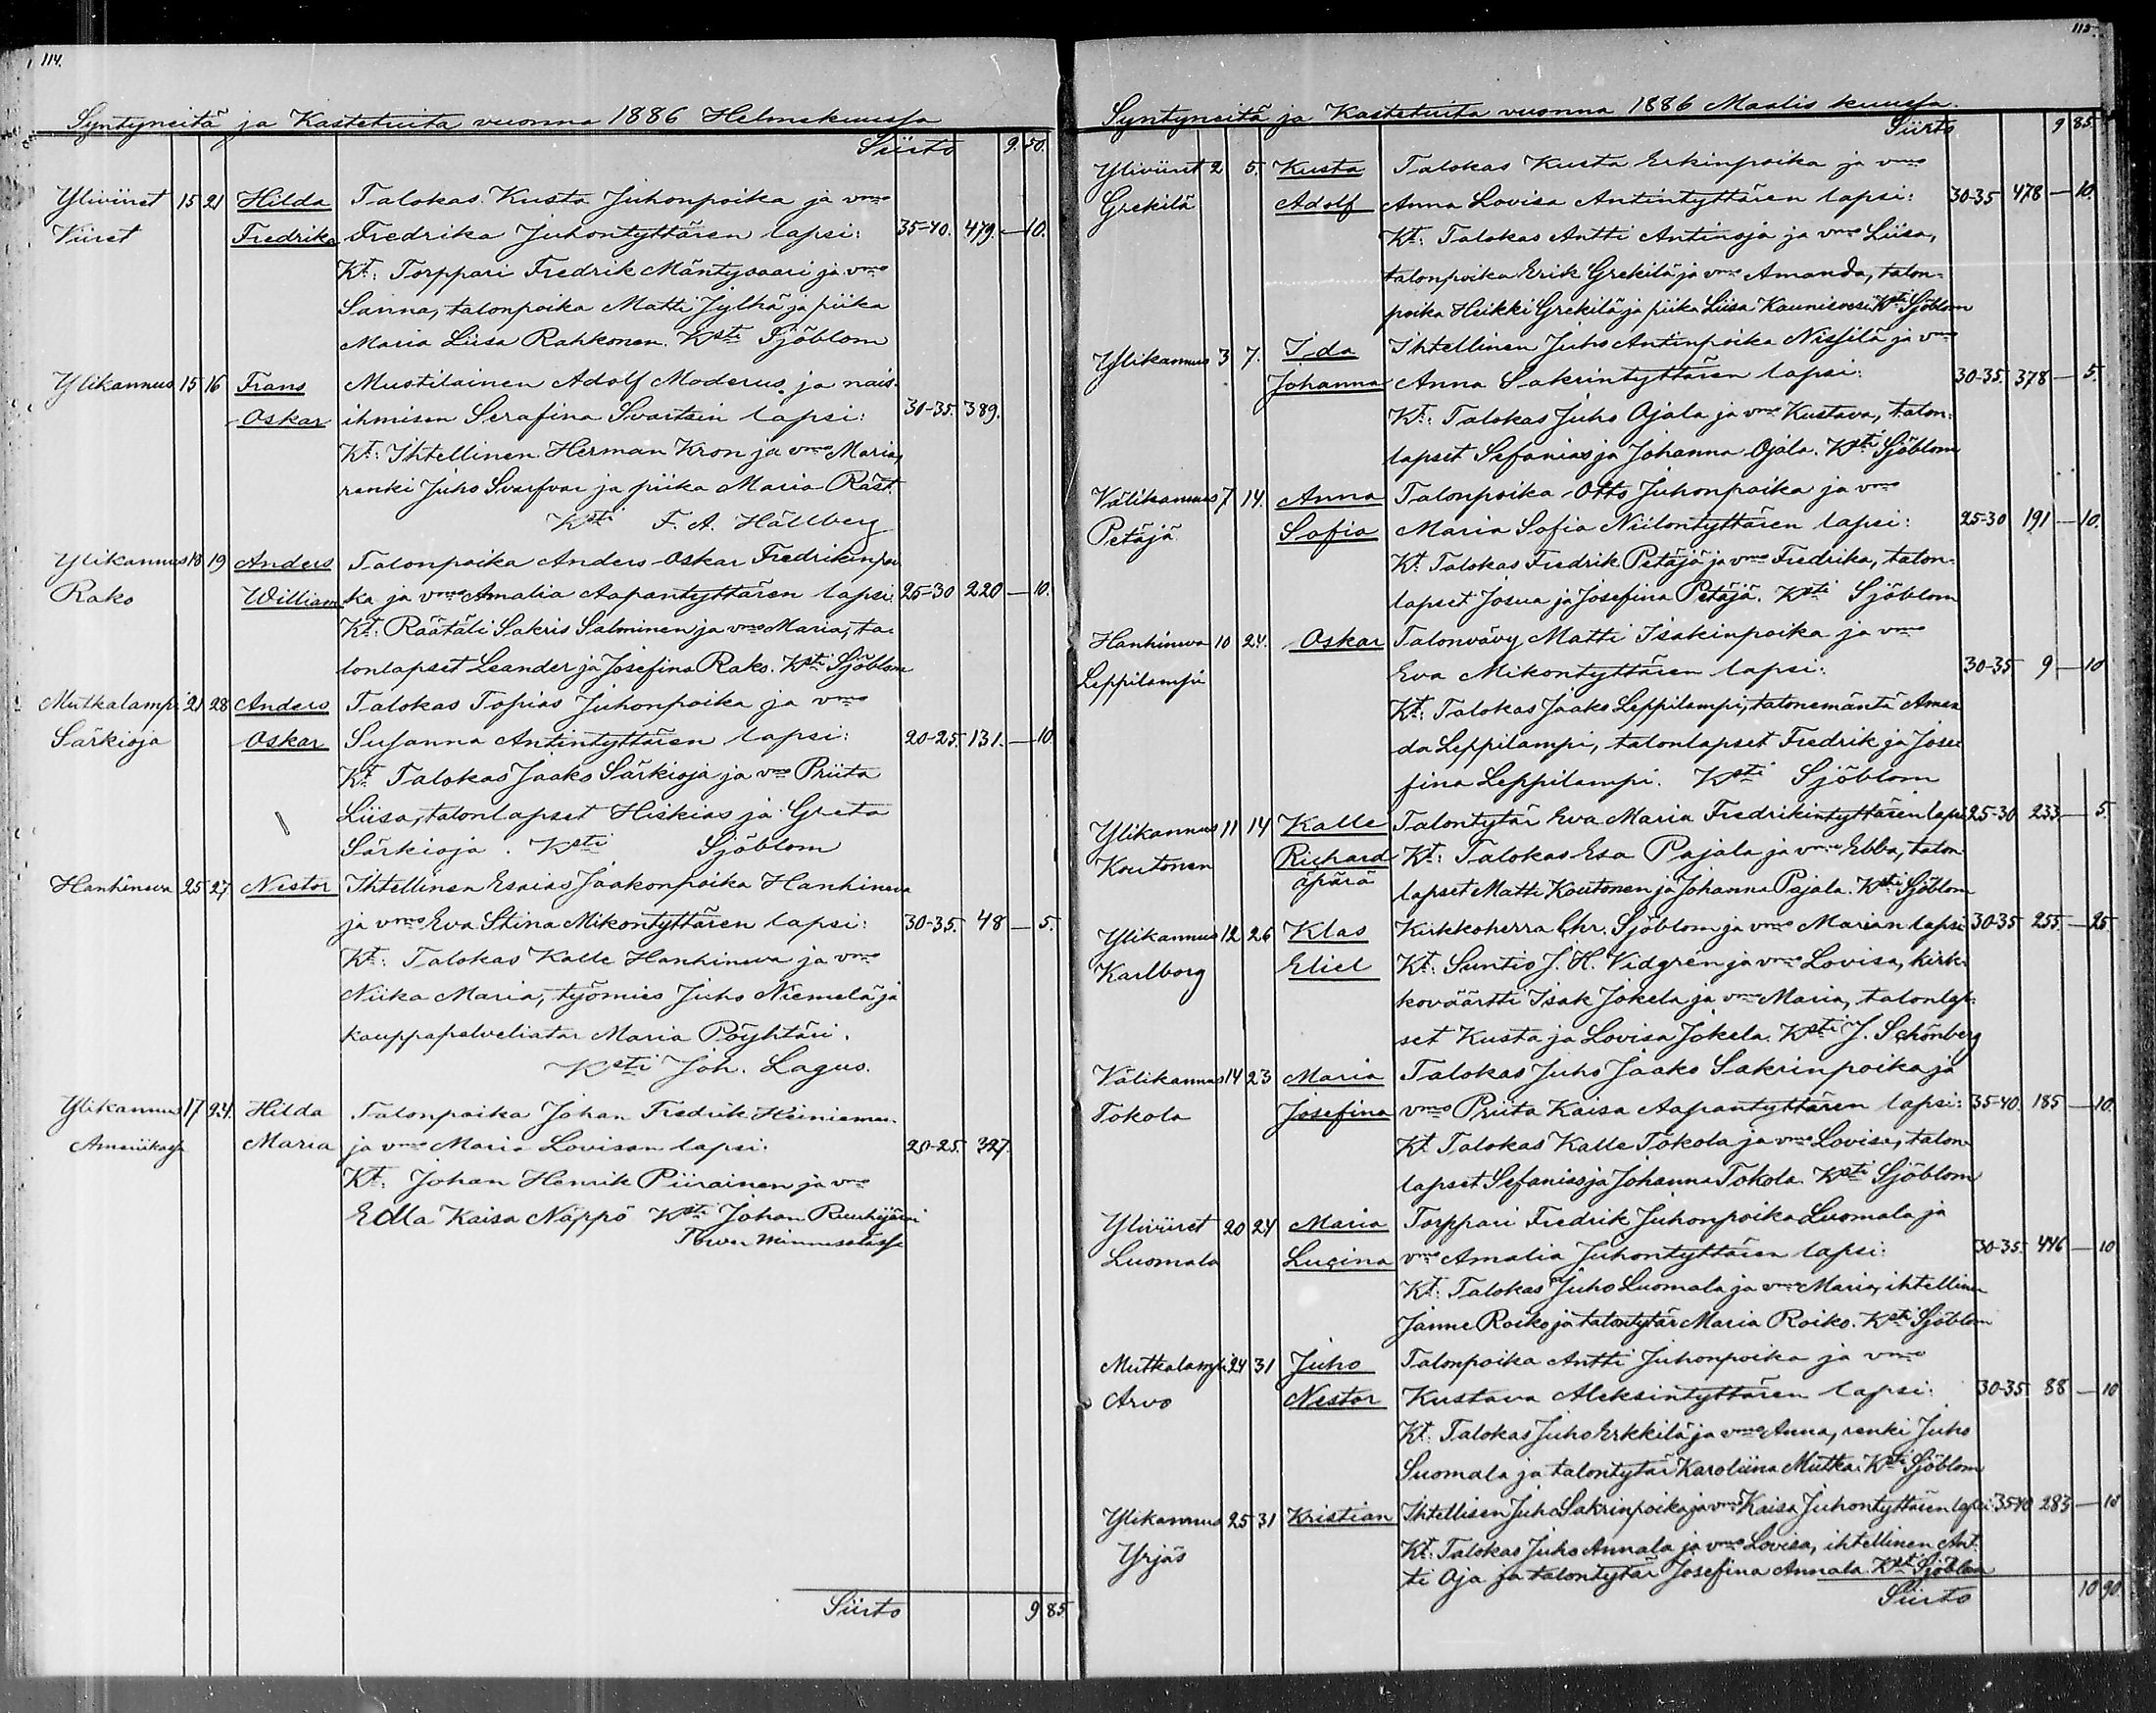 114.
Syntyneitä ja Kastetuita vuonna 1886 Helmikuussa
Siirto 9. 50.
Yliviiret 15 21 Hilda Talokas Kusta Juhonpoika ja vmo
Viiret Fredrika Fredrika Juhontyttären lapsi: 35-40. 479. — 10.
Kt: Torppari Fredrik Mäntysaari ja vmo
Sanna, talonpoika Matti Jylhä ja piika
Maria Liisa Rahkonen. Ksti Sjöblom
Ylikannus 15 16 Frans Mustilainen Adolf Moderus ja nais-
Oskar ihmisen Serafina Svartsin lapsi: 30-35. 389.
Kt: Ihtellinen Herman Kron ja vmo Maria,
renki Juho Svarfvar ja piika Maria Räst.
Ksti F. A. Hällberg
Ylikannus 18 19 Anders Talonpoika Anders Oskar Fredrikinpoi
Rako William ka ja vmo Amalia Aapantyttären lapsi: 25-30 220 — 10.
Kt: Räätäli Sakris Salminen ja vmo Maria, ta-
lonlapset Leander ja Josefina Rako. Ksti Sjöblom
Mutkalampi 21 28 Anders Talokas Topias Juhonpoika ja vmo
Särkioja Oskar Susanna Antintyttären lapsi: 20-25. 131. — 10.
Kt Talokas Jaako Särkioja ja vmo Priita
Liisa, talonlapset Hiskias ja Greta
Särkioja. Ksti Sjöblom
Hanhineva 25 27 Nestor Ihtellinen Esaias Jaakonpoika Hanhineva
ja vmo Eva Stina Mikontyttären lapsi: 30-35. 48 — 5.
Kt: Talokas Kalle Hanhineva ja vmo
Niika Maria, työmies Juho Niemelä ja
kauppapalveliatar Maria Pöyhtäri.
Ksti Joh. Lagus.
Ylikannus 17 9.4. Hilda Talonpoika Johan Fredrik Heiniemaa
Ameriikassa Maria ja vmo Maria Lovisan lapsi: 20-25. 327.
Kt: Johan Henrik Piirainen ja vmo
Edla Kaisa Näppö Ksti Johan Ruuhijärvi
Tower Minnesotassa
Siirto 9 85
115.
Syntyneitä ja Kastetuita vuonna 1886 Maaliskuussa.
Siirto 9 85.
Yliviiret 2 5. Kusta Talokas Kusta Erkinpoika ja vmo
Grekilä Adolf Anna Lovisa Antintyttären lapsi: 30-35 478 — 10.
Kt: Talokas Antti Antinoja ja vmo Liisa,
talonpoika Erik Grekilä ja vmo Amanda, talon-
poika Heikki Grekilä ja piika Liisa Kaunisvesi Ksti Sjöblom
Ylikannus 3 7. Ida Ihtellinen Juho Antinpoika Nissilä ja vmo
Johanna Anna Sakrintyttären lapsi: 30-35. 378 — 5.
Kt: Talokas Juho Ojala ja vmo Kustava, talon-
lapset Sefanias ja Johanna Ojala. Ksti Sjöblom
Välikannus 7 14. Anna Talonpoika Otto Juhonpoika ja vmo
Petäjä Sofia Maria Sofia Niilontyttären lapsi: 25-30 191 — 10.
Kt Talokas Fredrik Petäjä ja vmo Fredrika, talon-
lapset Josua ja Josefina Petäjä. Ksti Sjöblom
Hanhineva 10 24. Oskar Talonvävy Matti Isakinpoika ja vmo
Leppilampi Eva Mikontyttären lapsi: 30-35 9 — 10
Kt: Talokas Jaako Leppilampi, talonemäntä Aman
da Leppilampi, talonlapset Fredrik ja Jose
fina Leppilampi. Ksti Sjöblom
Ylikannus 11 14 Kalle Talontytär Eva Maria Fredrikintyttären lapsi 25-30 233 — 5.
Koutonen Richard Kt: Talokas Esa Pajala ja vmo Ebba, talon-
äpärä lapset Matti Koutonen ja Johanna Pajala. Ksti Sjöblom
Ylikannus 12 26 Klas Kirkkoherra Chr. Sjöblom ja vmo Marian lapsi 30-35 255. — 25
Karlborg Eliel Kt: Suntio J. H. Vidgrén ja vmo Lovisa, kirk-
koväärtti Isak Jokela ja vmo Maria, talonlap-
set Kusta ja Lovisa Jokela. Ksti J. Schönberg
Välikannus 14 23 Maria Talokas Juho Jaako Sakrinpoika ja
Tokola Josefina vmo Priita Kaisa Aapantyttären lapsi: 35-40. 185 — 10.
Kt Talokas Kalle Tokola ja vmo Lovisa, talon-
lapset Sefanias ja Johanna Tokola. Ksti Sjöblom
Yliviiret 20 24 Maria Torppari Fredrik Juhonpoika Luomala ja
Luomala Lucina vmo Amalia Juhontyttären lapsi: 30-35. 446 — 10
Kt: Talokas Juho Luomala ja vmo Maria, ihtellinen
Janne Roiko ja talontytär Maria Roiko. Ksti Sjöblom
Mutkalampi 24 31 Juho Talonpoika Antti Juhonpoika ja vmo
Arvo Nestor Kustava Aleksintyttären lapsi: 30-35. 88 — 10
Kt. Talokas Juho Erkkilä ja vmo Anna, renki Juho
Suomala ja talontytär Karoliina Mutka. Ksti Sjöblom
Ylikannus 25 31 Kristian Ihtellisen Juho Sakrinpoika ja vmo Kaisa Juhontyttären lapsi 35-40 283 — 10
Yrjäs Kt: Talokas Juho Annala ja vmo Lovisa, ihtellinen Ant-
ti Oja ja talontytär Josefina Annala Ksti Sjöblom
Siirto 10 90.